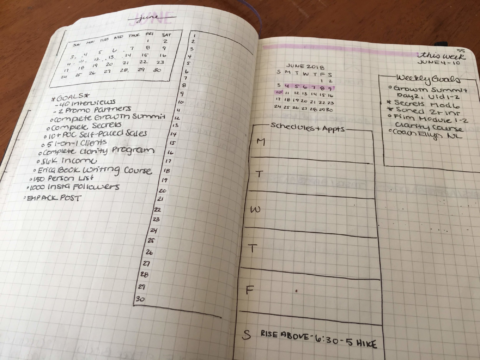 June
SUN MON TUE WED THU FRI SAT
1 2
3 4 5 6 7 8 9
10 11 12 13 14 15 16
17 18 19 20 21 22 23
24 25 26 27 28 29 30
*GOALS*
-40 Interviews
-2 Promo Partners
Complete Growth Summit
Complete Secrets
10+ POC Self-Paced Sales
5 1-on-1 Clients
Complete Clarity Program
Income
Book Writing Course
150 Person List
1000 Insta Followers
POST
1
2
3
4
5
6
7
8
9
10
11
12
13
14
15
16
17
18
19
20
21
22
23
24
25
26
27
28
29
30
55
this week
JUNE 4-10
JUNE 2018
S M T W T F S
1 2
3 4 5 6 7 8 9
10 11 12 13 14 15 16
17 18 19 20 21 22 23
24 25 26 27 28 29 30
Schedules+Appts
M
T
W
T
F
S RISE ABOVE-6:30-5 HIKE
Weekly Goals
Growth Summit
Day 2, Vid 1-2
Secrets Mod 6
Sched 2+ Int
Film Module 1-2
Clarity Course
Coach